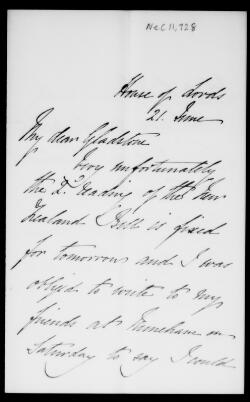 NeC 11,728
House of Lords
21. June
My dear Gladstone
Very unfortunately
the 2d. reading of the New
Zealand Bill is fixed
for tomorrow and I was
obliged to write to my
friends at Nuneham on
Saturday to say I could